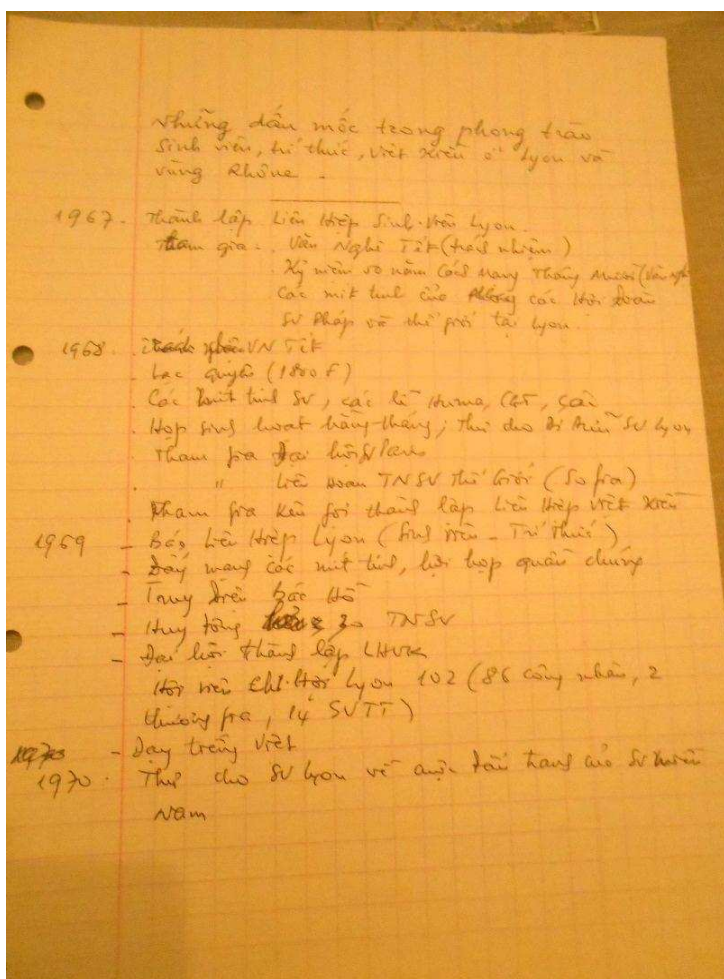 Những dấu mốc trong phong trào
Sinh viên, trí thức, việt kiều ở Lyon và
vùng Rhône -
1967. Thành lập Liên Hiệp Sinh Viên Lyon.
Tham gia . Văn Nghệ Tết (trách nhiệm)
Kỷ niệm 50 năm Cách Mạng Tháng Mười (Văn nghệ
Các mit tinh của các Hội Đoàn
SV Pháp và thế giới tại Lyon.
1968. VN Tết
. Lạc quyên (1800 F)
. Các mit tinh SV, các lễ Huma,
. Họp sinh hoạt hằng tháng; Thư cho SV Lyon
. Tham gia Đại hội SV Paris
" Liên hoan TNSV Thế Giới (Sofia)
Tham gia kêu gọi thành lập Liên Hiệp việt kiều
1969 - Báo Liên Hiệp Lyon (Sinh viên - Trí thức)
- Đẩy mạng các mit tinh, hội họp quần chúng
- Truy điệu Bác Hồ
- Huy động TNSV
- Đại hội thành lập LHVK
Hội viên Chi Hội Lyon 102 (86 công nhân, 2
thương gia, 14 SVTT)
- Dạy tiếng Việt
1970. Thư cho SV Lyon về cuộc đấu tranh của SV miền
Nam